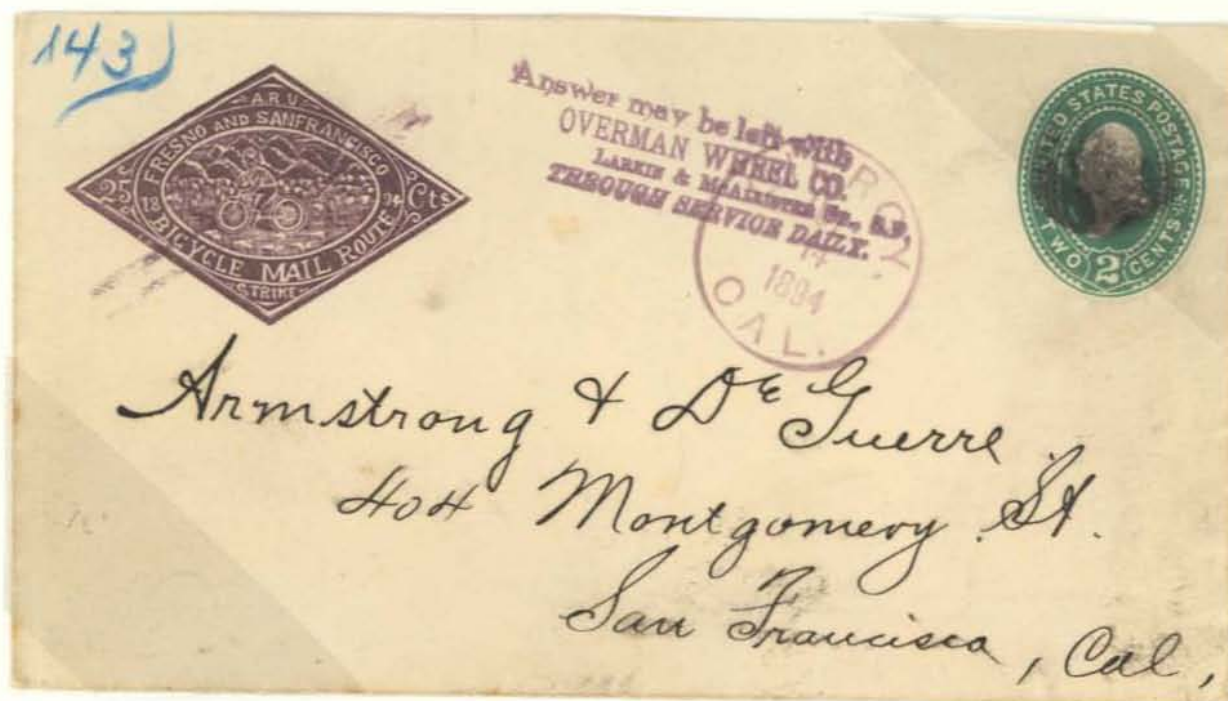 143
A.R.U.
FRESNO AND SANFRANCISCO
25 Cts
18 94
BICYCLE MAIL ROUTE
STRIKE
Answer may be left with
OVERMAN WHEEL CO.
LARKIN & MCALLISTER STS., S.F.
THROUGH SERVICE DAILY.
ROY
14
1894
CAL.
UNITED STATES POSTAGE
TWO 2 CENTS
Armstrong & De Guerre
404 Montgomery St.
San Francisco, Cal,